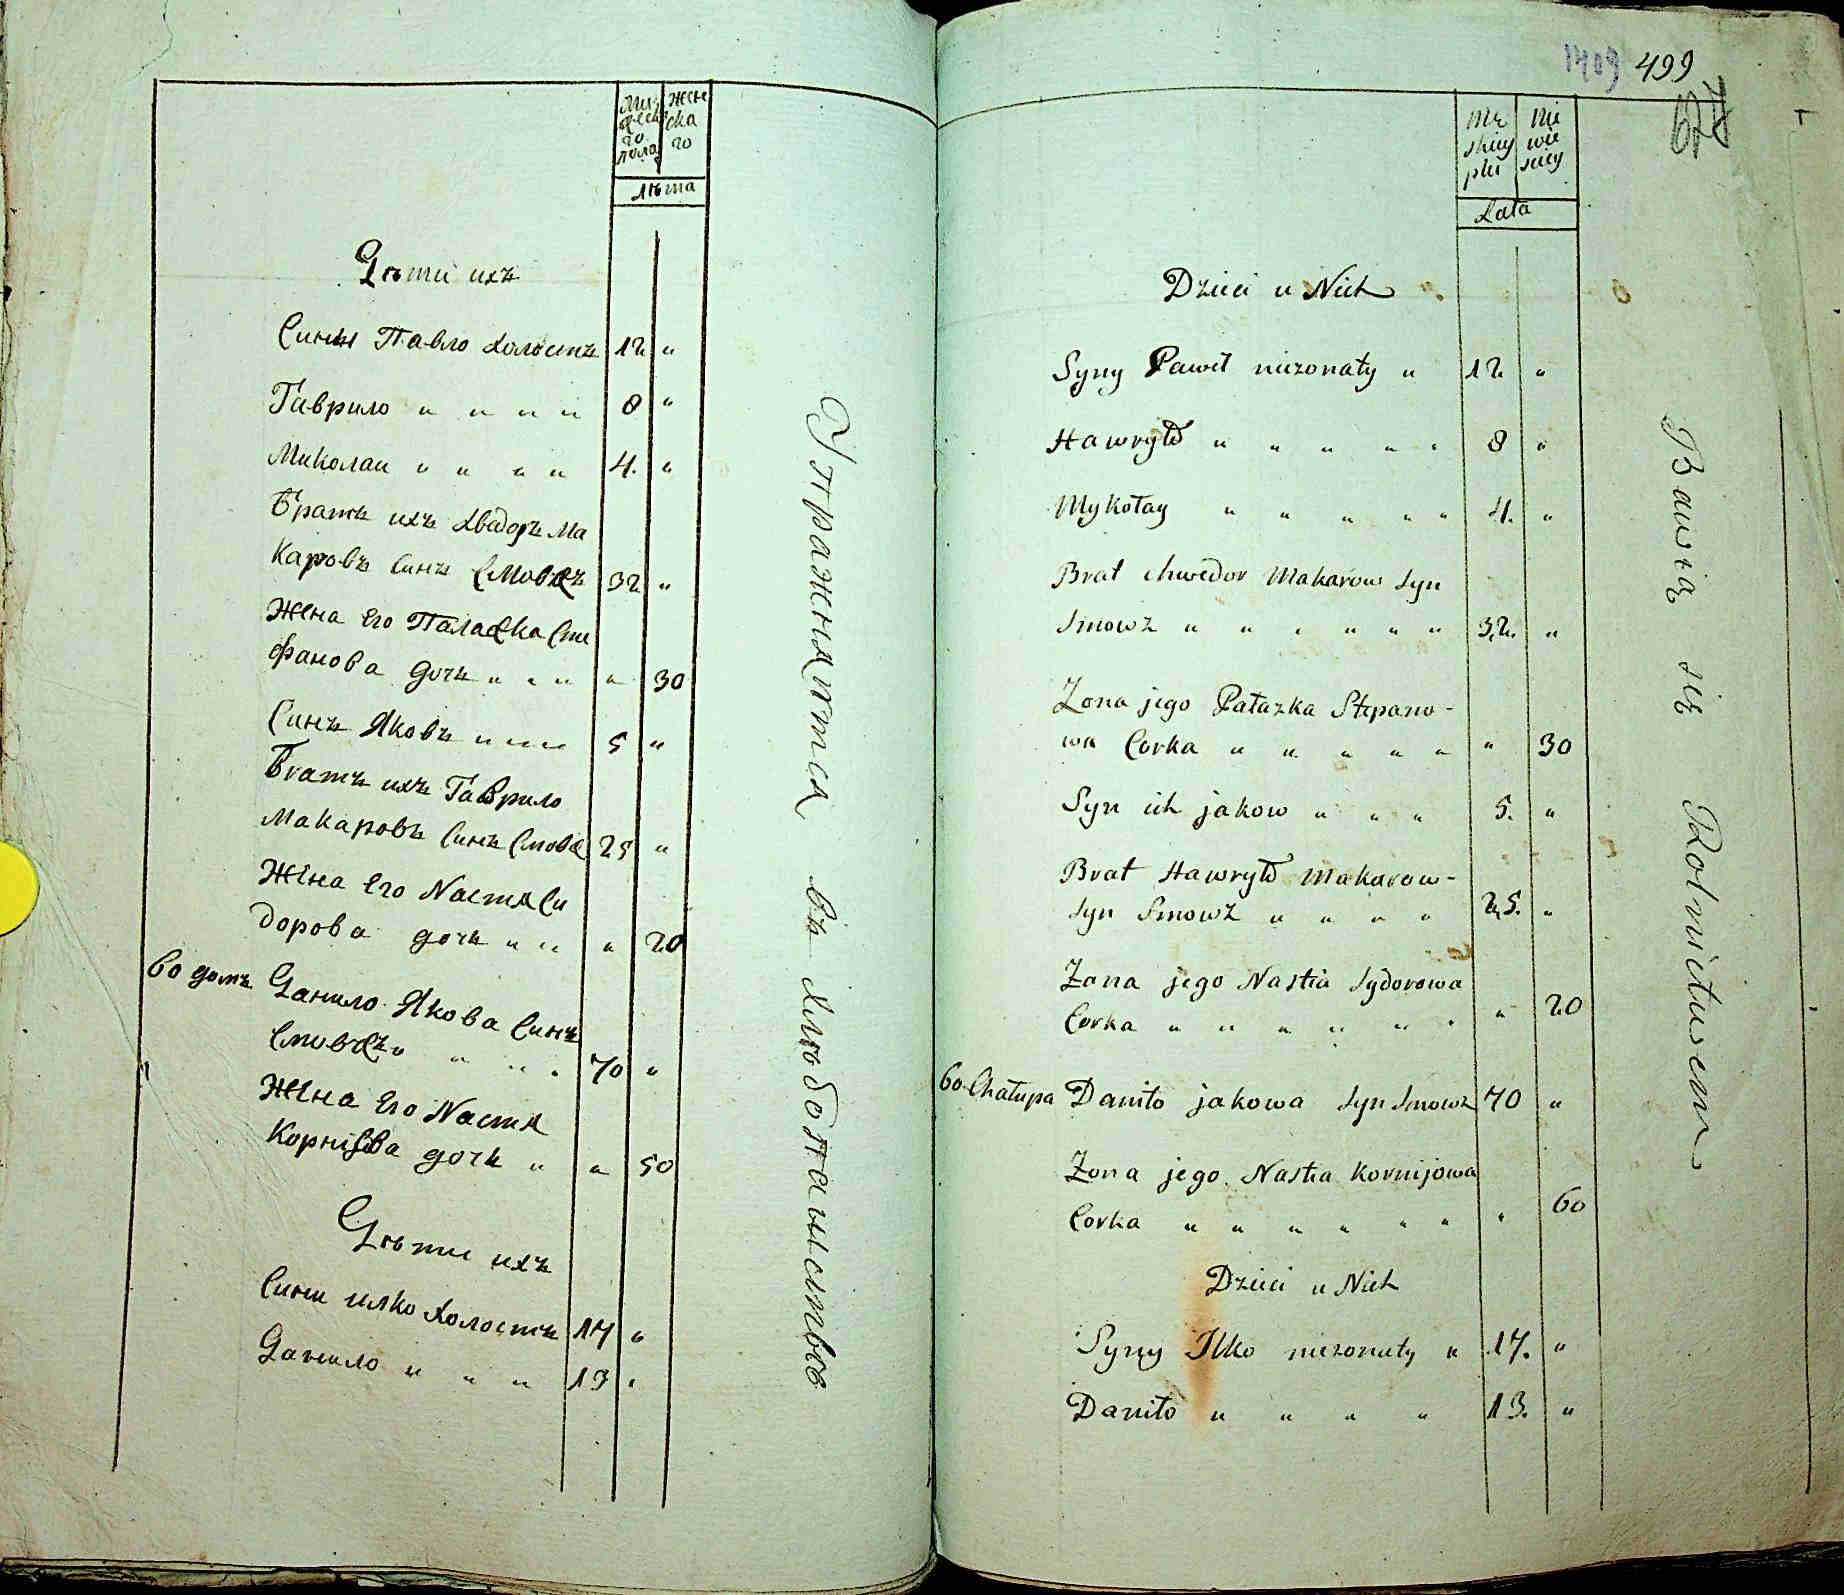 Мужеска
го
пола
Женска
го
лѣта
Дѣти ихъ
Сини Павло холостъ 12 "
Гаврило " " " " 8 "
Миколаи " " " " 4. "
Братъ ихъ Хведоръ Ма
каровъ Синъ Смовжъ 32 "
Жена Его Палажка Сте
фанова дочь " " " " 30
Синъ Яковъ " " " 5 "
Братъ ихъ Гаврило
Макаровъ Синъ Смовж 25 "
Жена Его Настя Си
дорова дочь " " " 20
60 домъ Данило Якова Синъ
Смовжъ " " " " 70 "
Жена Его Настя
Корніева дочь " " 50
Дѣти ихъ
Сини илко холостъ 17 "
Данило " " " 13 "
Упражняются въ хлѣбопашествѣ
499
Mę
skiey
płci
Nie
wie
sciey
Lata
Dzieci u Nich
Syny Paweł niezonaty " 12 "
Hawryło " " " " " 8 "
Mykołay " " " " " 4. "
Brat chwedor Makarow Syn
Smowż " " " " " " 32. "
Zona jego Pałazka Stepano-
wa Corka " " " " " " 30
Syn ich jakow " " " 5. "
Brat Hawryło Makarow-
Syn Smowż " " " " 25. "
Zona jego Nastia Sydorowa
Corka " " " " " " " 20
60 Chałupa Daniło jakowa Syn Smowż 70 "
Zona jego Nastia Kornijowa
Corka " " " " " " " 60
Dzieci u Nich
Syny Ilko niezonaty " 17. "
Daniło " " " " 13. "
Bawią się Rolnictwem